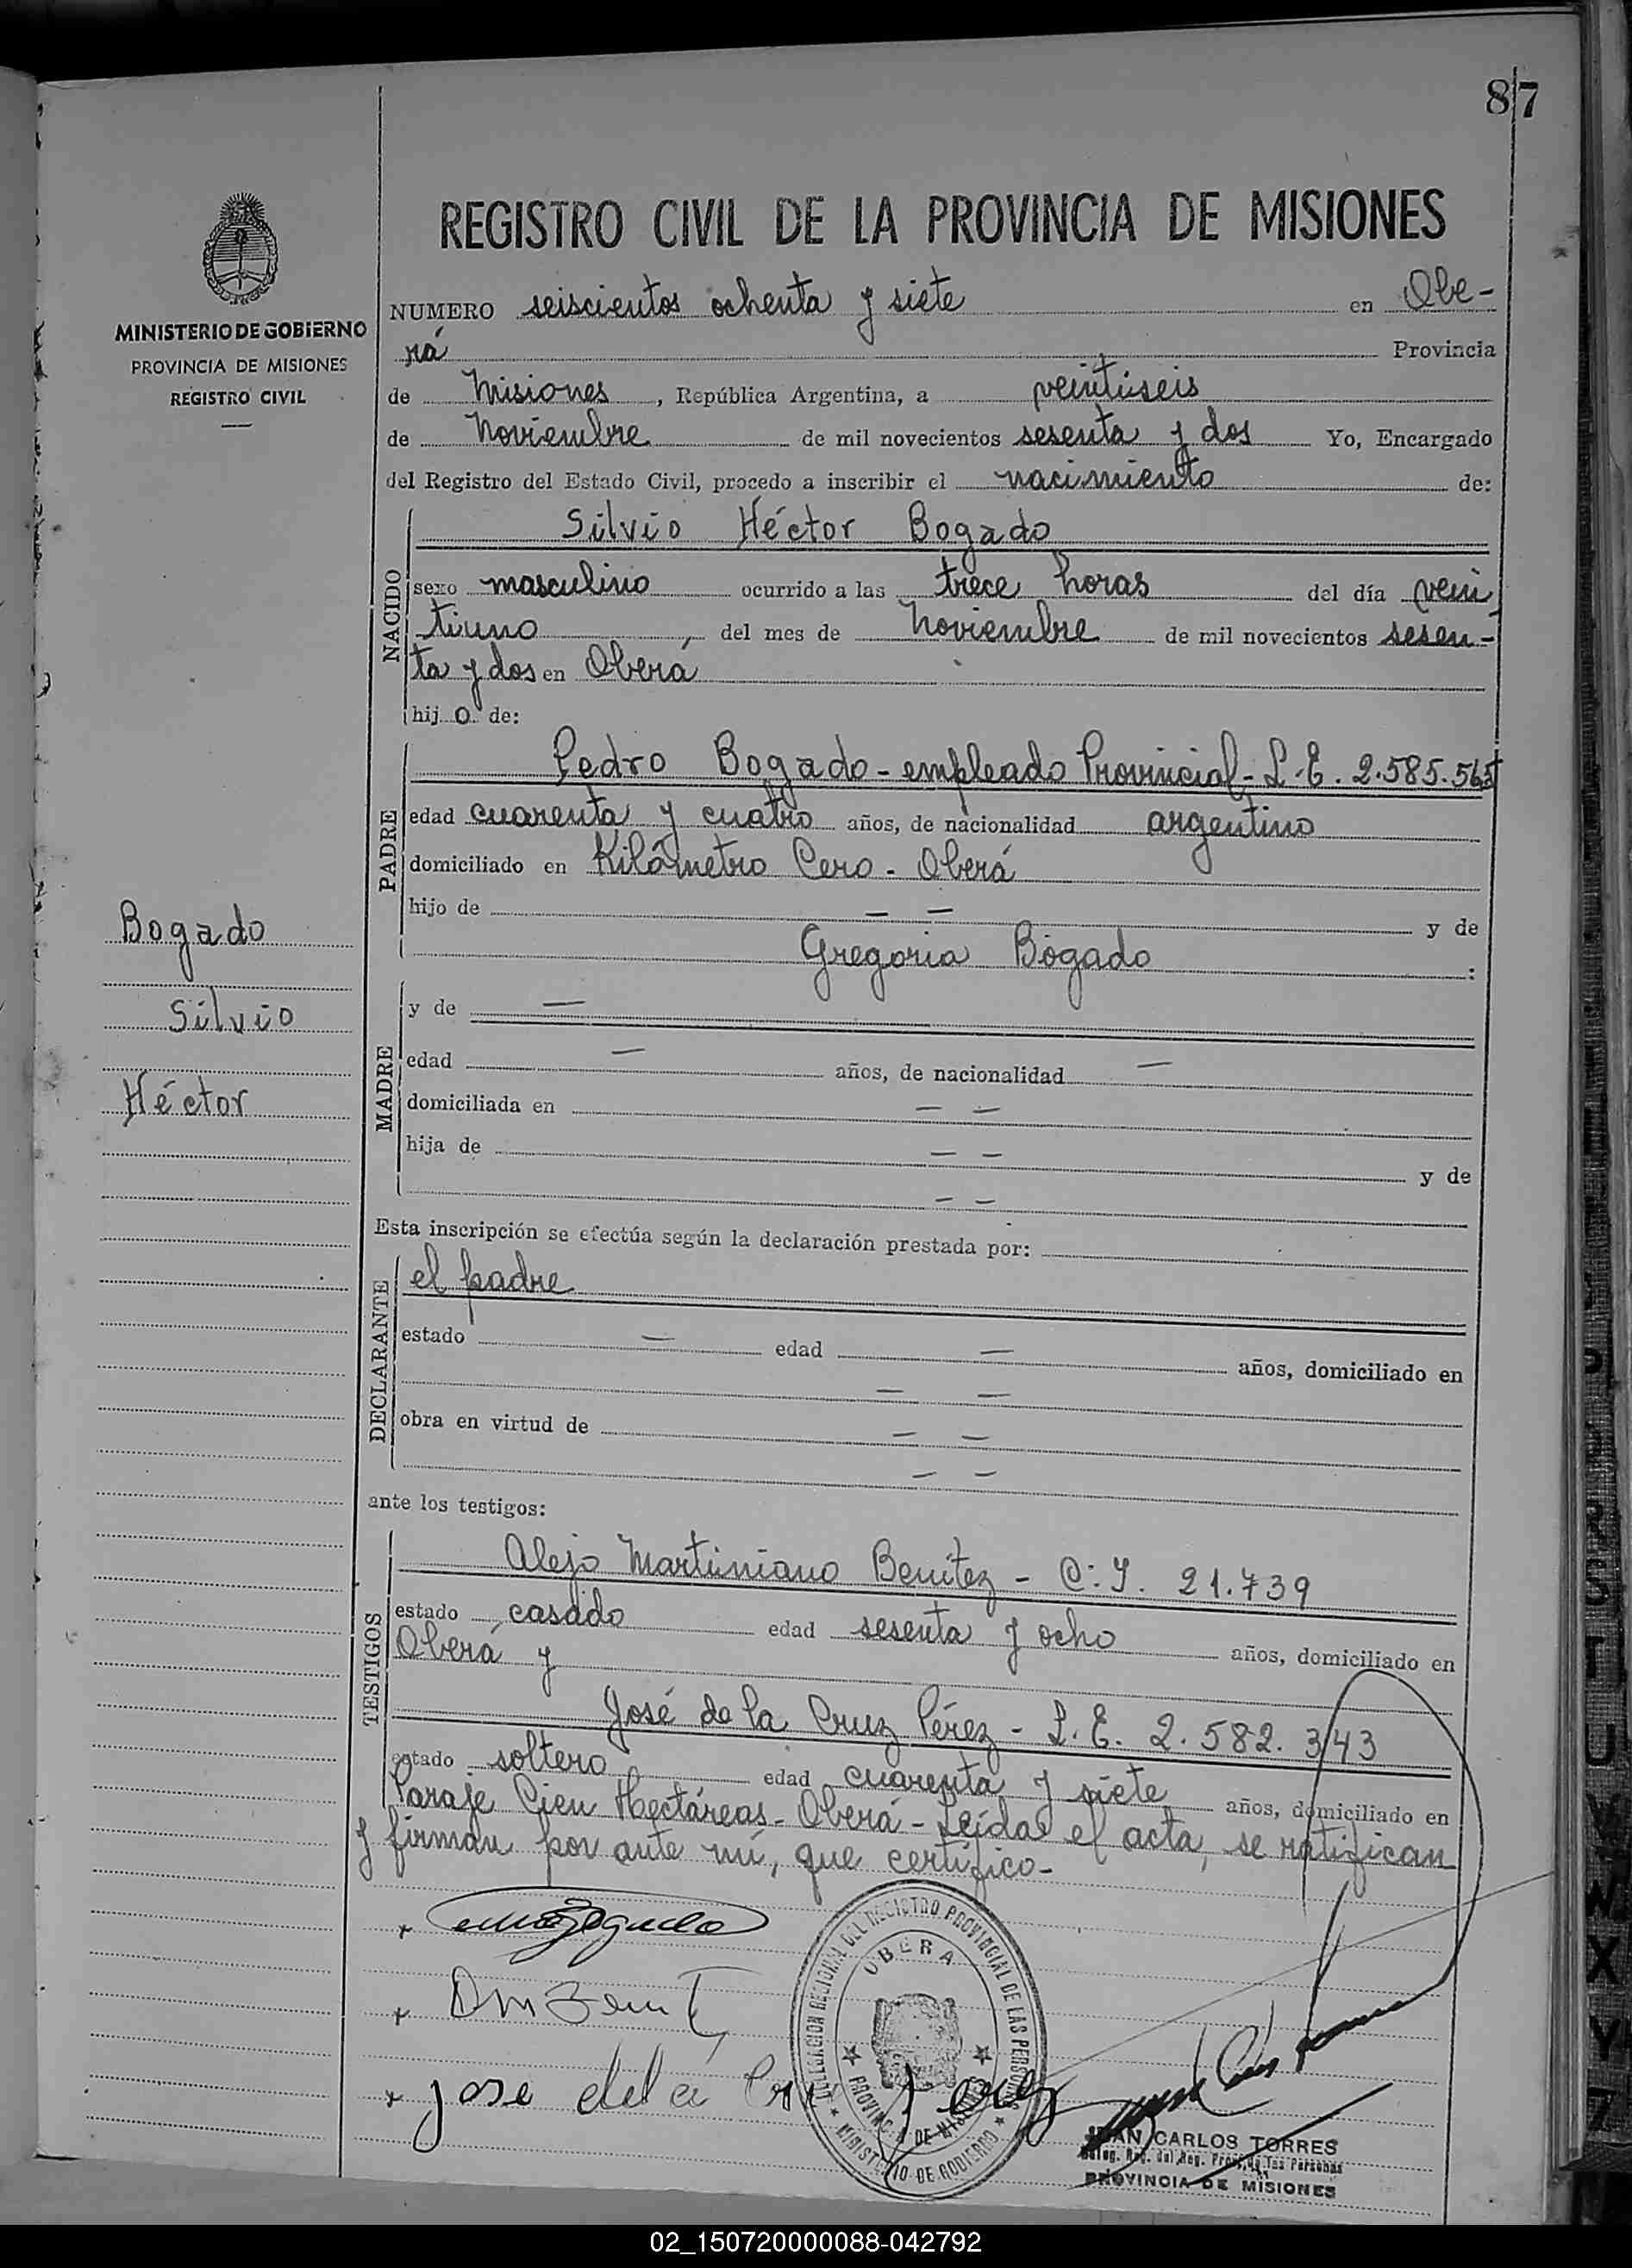 87
REGISTRO CIVIL DE LA PROVINCIA DE MISIONES
MINISTERIO DE GOBIERNO
PROVINCIA DE MISIONES
REGISTRO CIVIL
NUMERO seiscientos ochenta y siete en Obe-
rá Provincia
de Misiones, República Argentina, a veintiseis
de Noviembre de mil novecientos sesenta y dos Yo, Encargado
del Registro del Estado Civil, procedo a inscribir el nacimiento de:
NACIDO
Silvio Héctor Bogado
sexo masculino ocurrido a las trece horas del día vein
tiuno, del mes de Noviembre de mil novecientos sesen-
ta y dos en Oberá
hijo de:
PADRE
Pedro Bogado - empleado Provincial - L.E. 2.585.565
edad cuarenta y cuatro años, de nacionalidad argentino
domiciliado en Kilómetro Cero - Oberá
hijo de — — y de
Gregoria Bogado :
Bogado
Silvio
Héctor
MADRE
y de —
edad — años, de nacionalidad —
domiciliada en — —
hija de — — y de
— —
Esta inscripción se efectúa según la declaración prestada por:
DECLARANTE
el padre
estado — edad — años, domiciliado en
— —
obra en virtud de — —
— —
ante los testigos:
TESTIGOS
Alejo Martiniano Benítez - C.I. 21.739
estado casado edad sesenta y ocho años, domiciliado en
Oberá y
José de la Cruz Pérez - L.E. 2.582.343
estado soltero edad cuarenta y siete años, domiciliado en
Paraje Cien Hectáreas - Oberá - Leída el acta, se ratifican
y firman por ante mí, que certifico -
jose dela Cruz Perez
DELEGACION REGIONAL DEL REGISTRO PROVINCIAL DE LAS PERSONAS
OBERA
PROVINCIA DE MISIONES
MINISTERIO DE GOBIERNO
JUAN CARLOS TORRES
Deleg. Reg. del Reg. Prov. de las Personas
PROVINCIA DE MISIONES
02_150720000088-042792